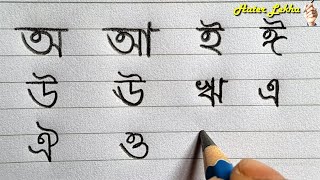 Hater Lekha
অ আ ই ঈ
উ ঊ ঋ এ
ঐ ও